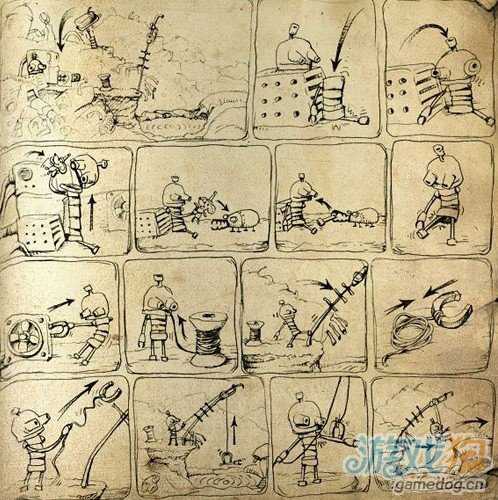 游戏狗
gamedog.cn